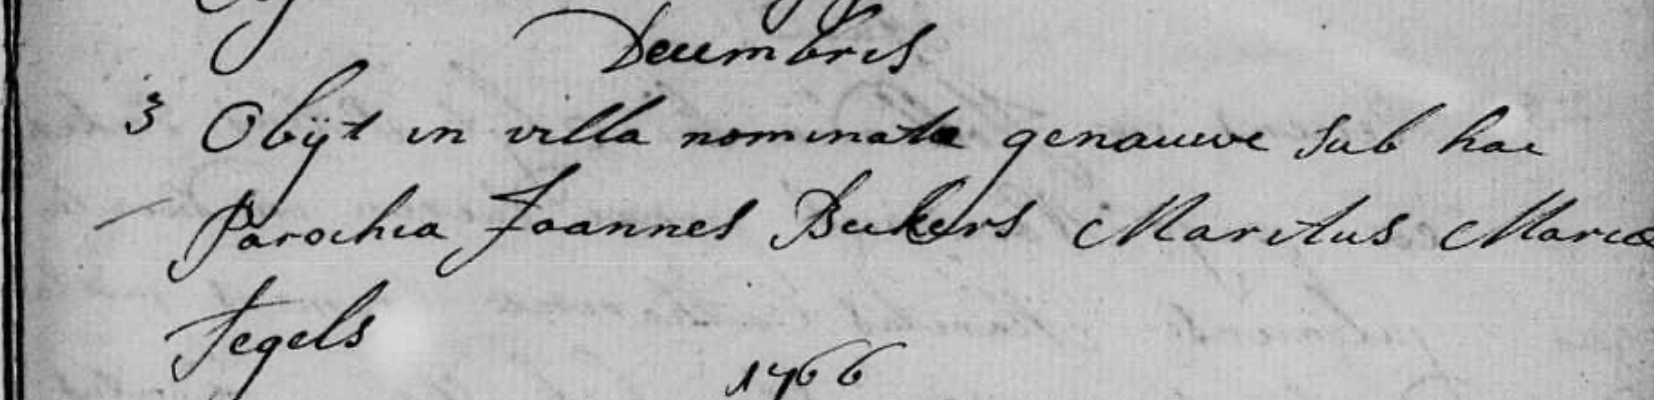 Decembris
3 Obijt in villa nominata genauwe sub hac
Parochia Joannes Beckers Maritus Mariæ
Tegels
1766